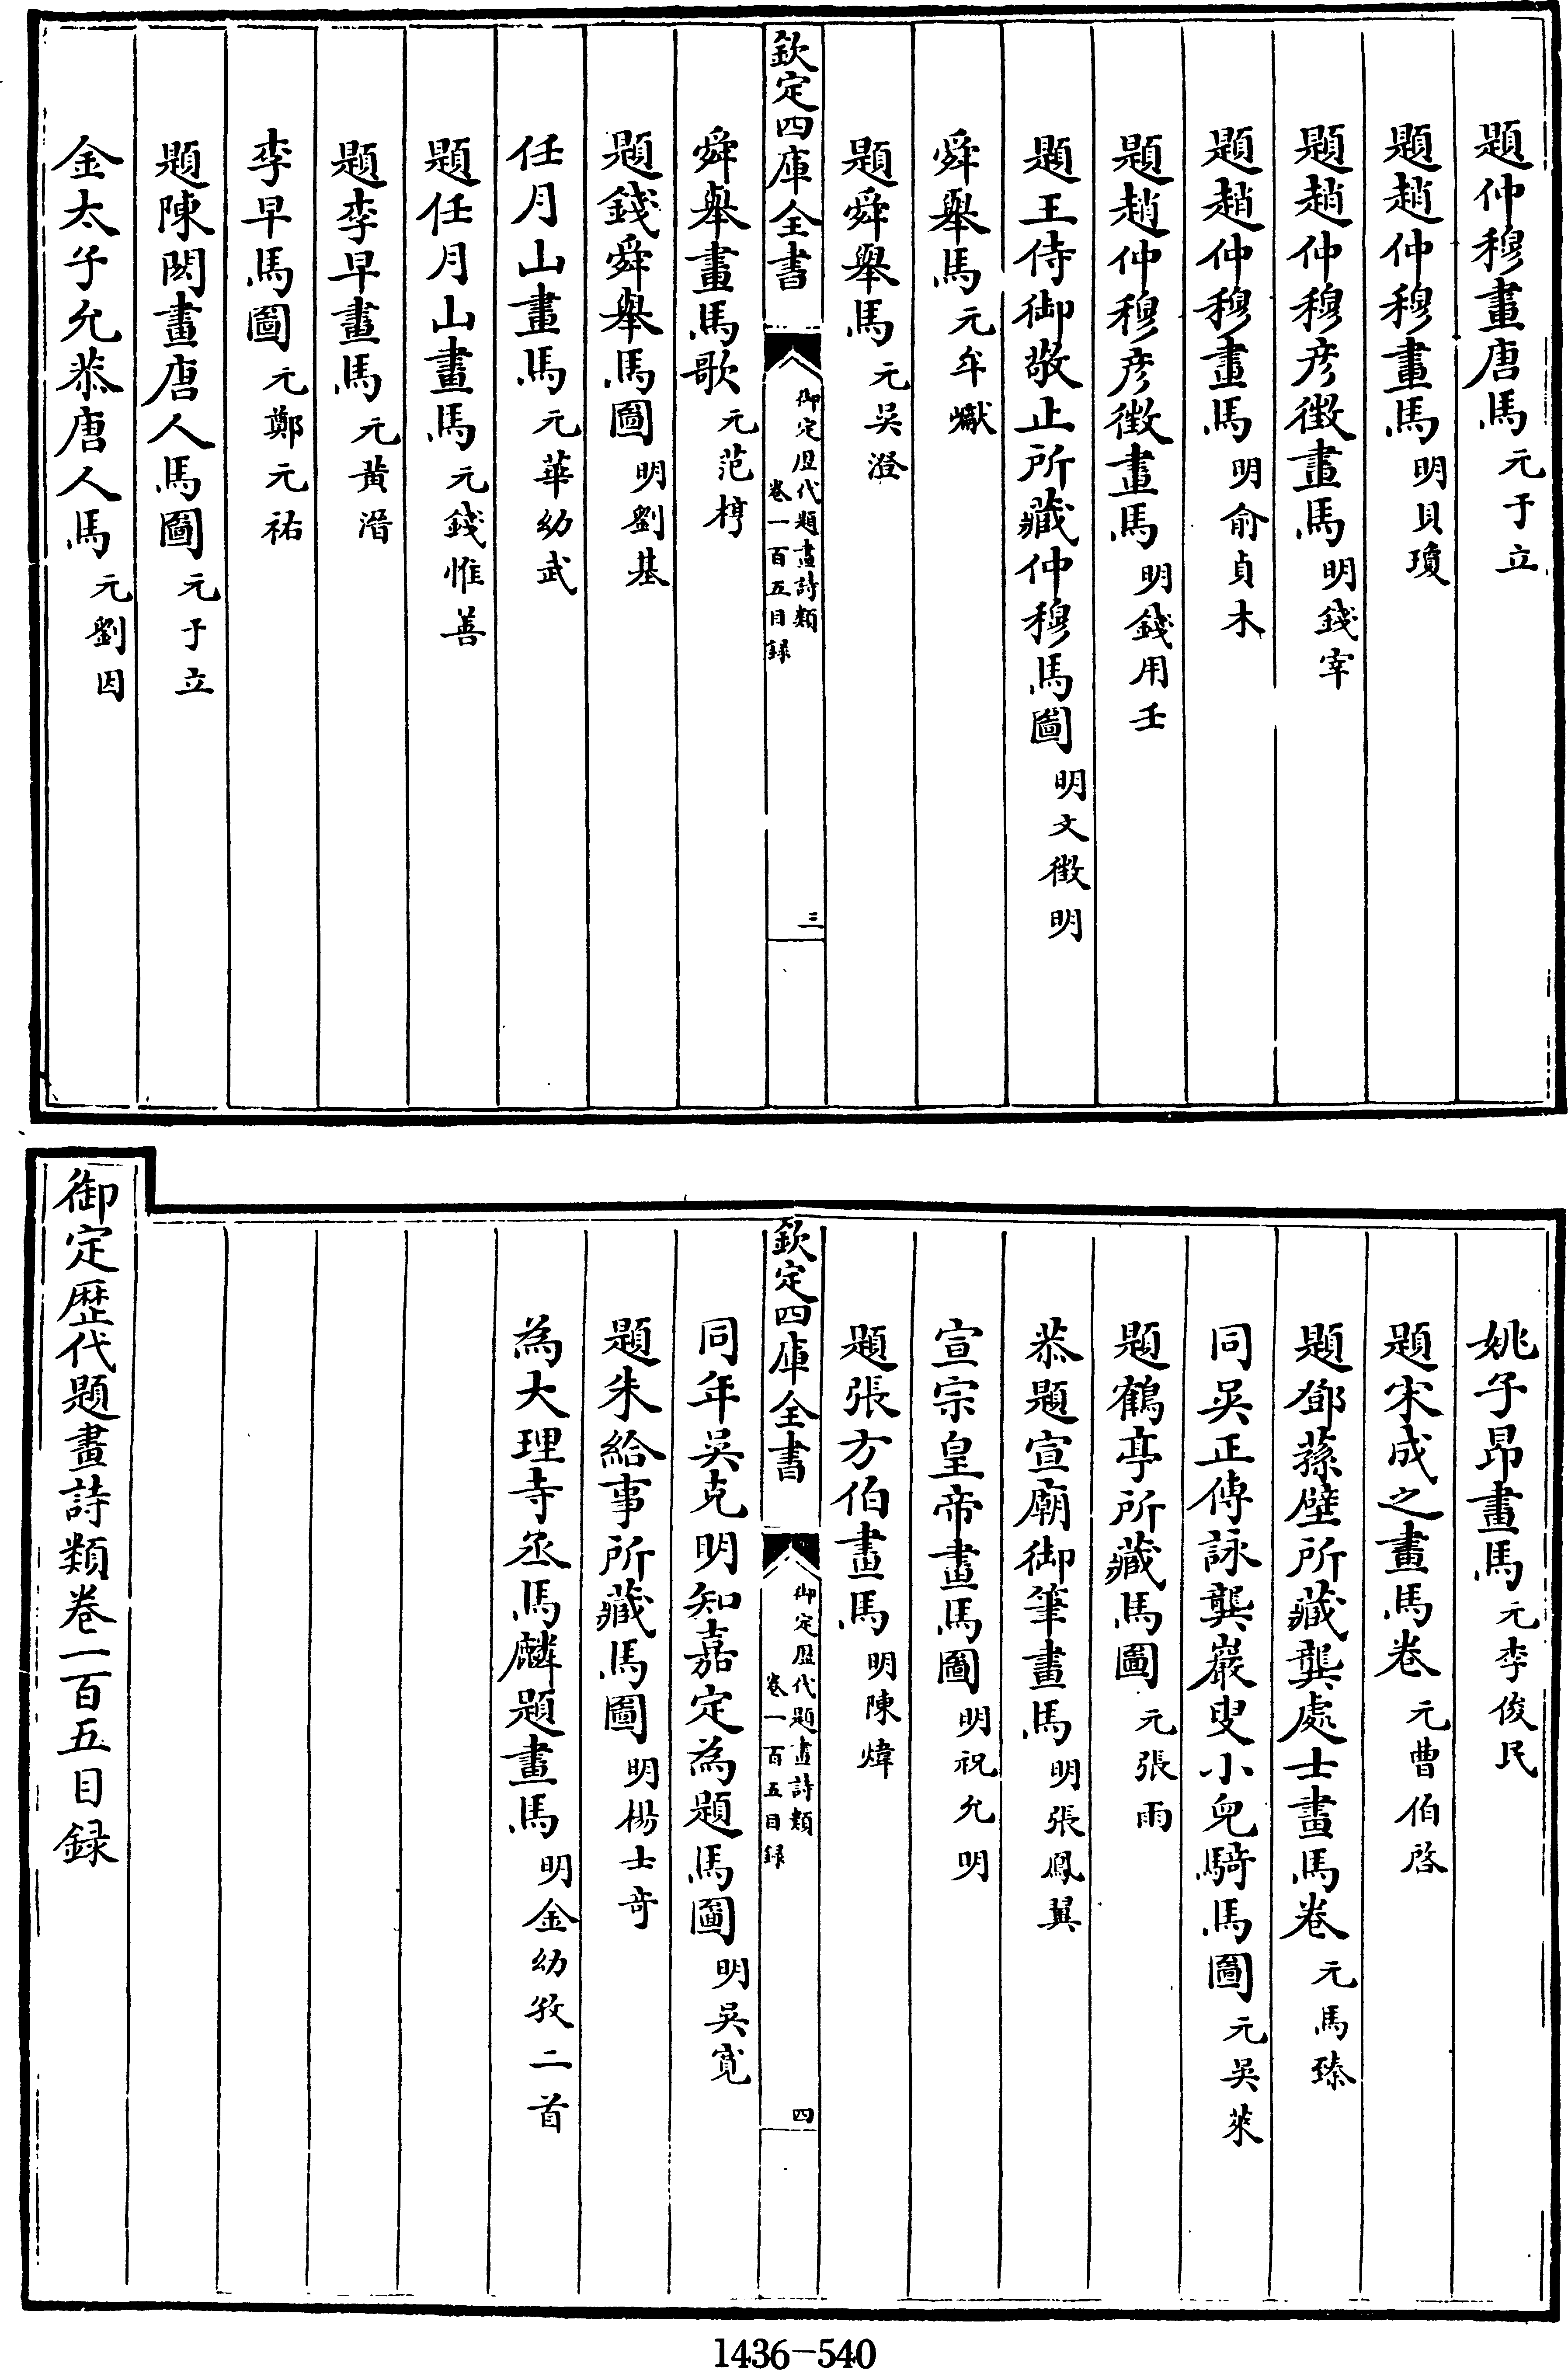 題仲穆畫唐馬 元于立
題趙仲穆畫馬 明貝瓊
題趙仲穆彦徵畫馬 明錢宰
題趙仲穆畫馬 明俞貞木
題趙仲穆彦徴畫馬 明錢用壬
題王侍御敬止所藏仲穆馬圖 明文徴明
舜舉馬 元牟巘
題舜舉馬 元吳澄
欽定四庫全書
御定歴代題畫詩類
卷一百五目録
三
舜舉畫馬歌 元范梈
題錢舜舉馬圖 明劉基
任月山畫馬 元華幼武
題任月山畫馬 元錢惟善
題李早畫馬 元黄溍
李早馬圖 元鄭元祐
題陳閎畫唐人馬圖 元于立
金太子允恭唐人馬 元劉因
姚子昂畫馬 元李俊民
題宋成之畫馬卷 元曹伯啓
題鄧蓀壁所藏龔處士畫馬卷 元馬臻
同吳正傳詠龔巖叟小兒騎馬圖 元吳萊
題鶴亭所藏馬圖 元張雨
恭題宣廟御筆畫馬 明張鳳翼
宣宗皇帝畫馬圖 明祝允明
題張方伯畫馬 明陳煒
欽定四庫全書
御定歴代題畫詩類
卷一百五目録
四
同年吳克明知嘉定為題馬圖 明吳寛
題朱給事所藏馬圖 明楊士奇
為大理寺丞馬麟題畫馬 明金幼孜二首
御定歴代題畫詩類卷一百五目録
1436-540